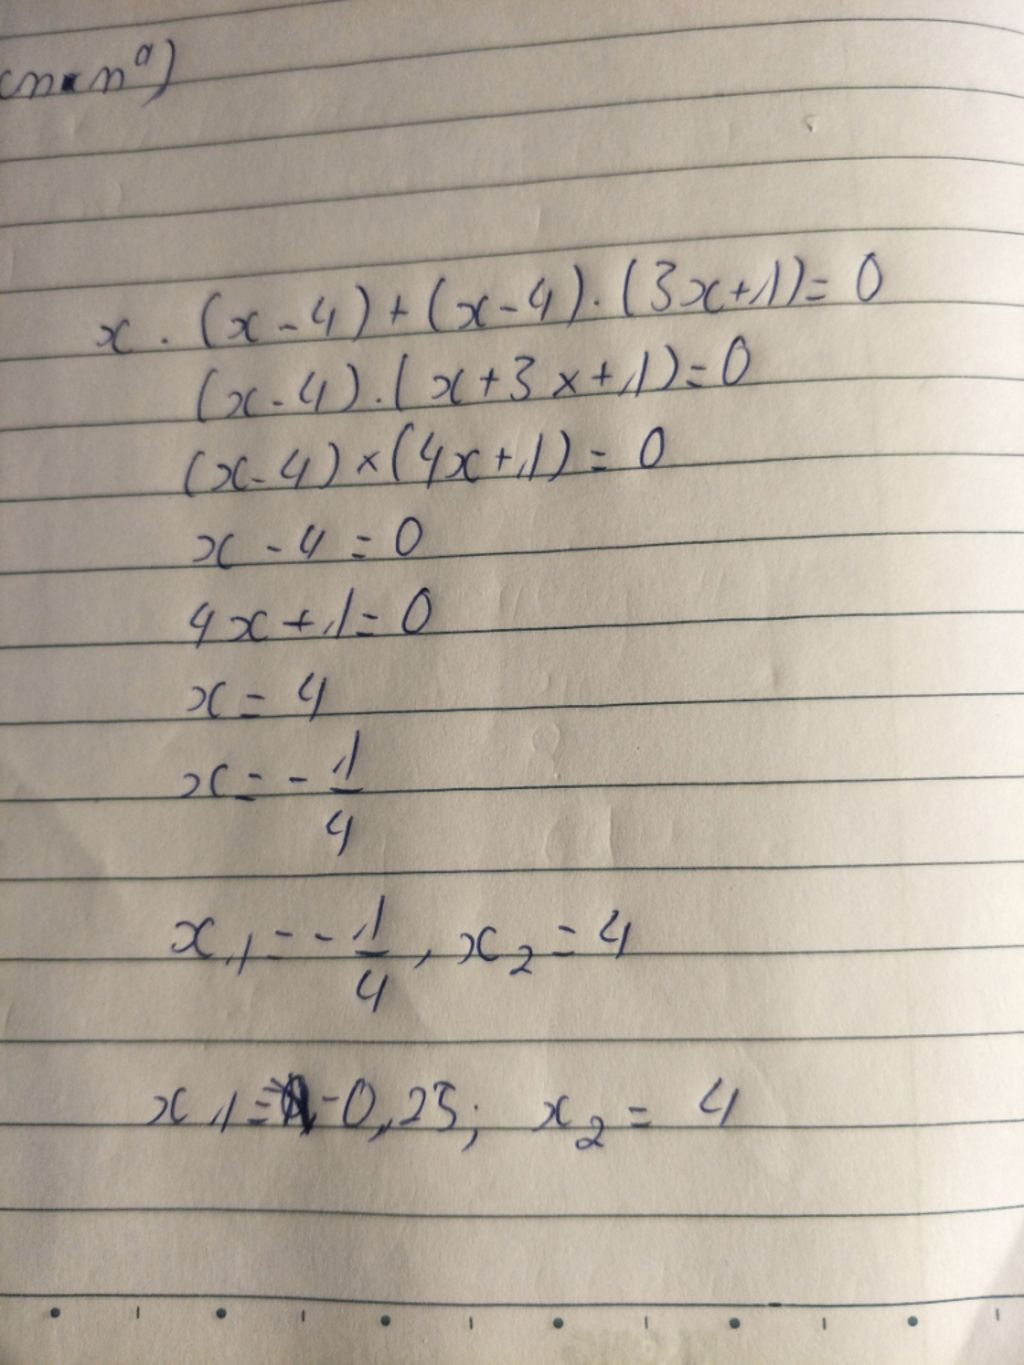 n·nª)
x · (x-4)+(x-4)·(3x+1)=0
(x-4)·(x+3x+1)=0
(x-4)×(4x+1)=0
x-4=0
4x+1=0
x=4
x=-1/4
x₁=-1/4, x₂=4
x₁=-0,25; x₂=4